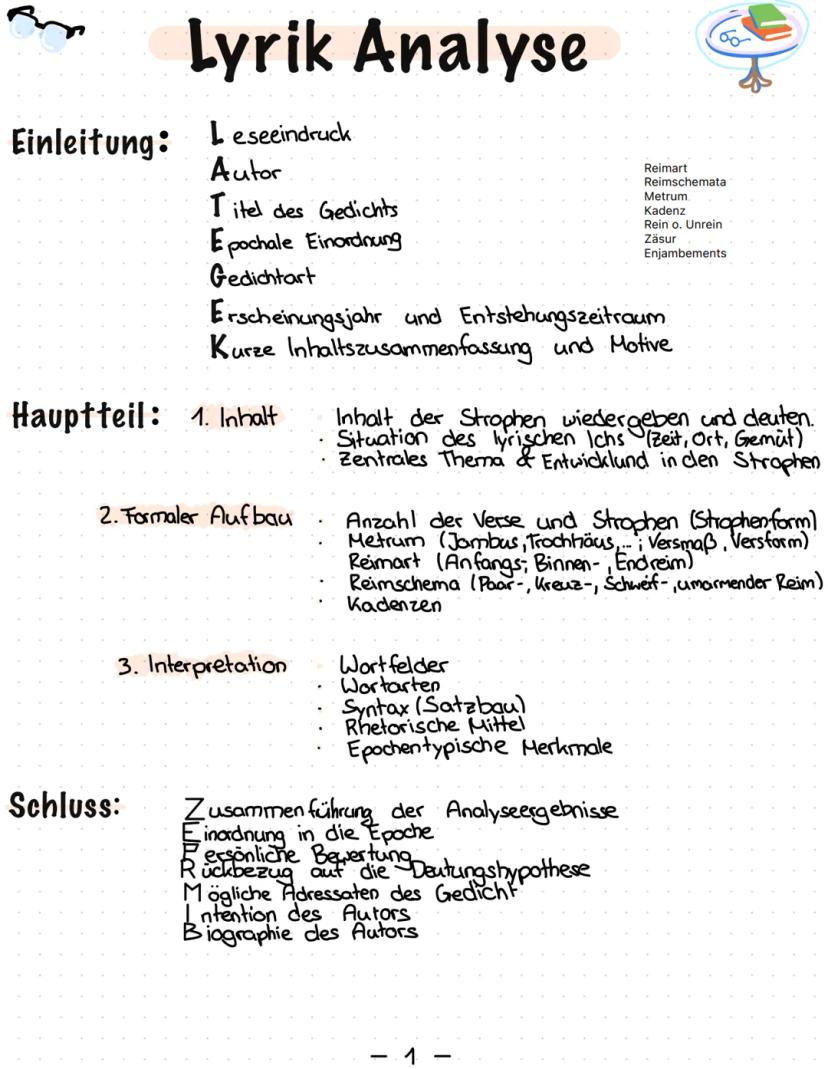 Lyrik Analyse
Einleitung:
Leseeindruck
Autor
Titel des Gedichts
Epochale Einordnung
Gedichtart
Erscheinungsjahr und Entstehungszeitraum
Kurze Inhaltszusammenfassung und Motive
Reimart
Reimschemata
Metrum
Kadenz
Rein o. Unrein
Zäsur
Enjambements
Hauptteil: 1. Inhalt
Inhalt der Strophen wiedergeben und deuten.
· Situation des lyrischen Ichs (Zeit, Ort, Gemüt)
· Zentrales Thema & Entwicklund in den Strophen
2. Formaler Aufbau
· Anzahl der Verse und Strophen (Strophenform)
· Metrum (Jambus, Trochhäus,... ; Versmaß, Versform)
Reimart (Anfangs-, Binnen-, Endreim)
· Reimschema (Paar-, Kreuz-, Schweif-, umarmender Reim)
· Kadenzen
3. Interpretation
Wortfelder
· Wortarten
· Syntax (Satzbau)
· Rhetorische Mittel
· Epochentypische Merkmale
Schluss:
Zusammenführung der Analyseergebnisse
Einordnung in die Epoche
Persönliche Bewertung
Rückbezug auf die Deutungshypothese
Mögliche Adressaten des Gedicht
Intention des Autors
Biographie des Autors
- 1 -